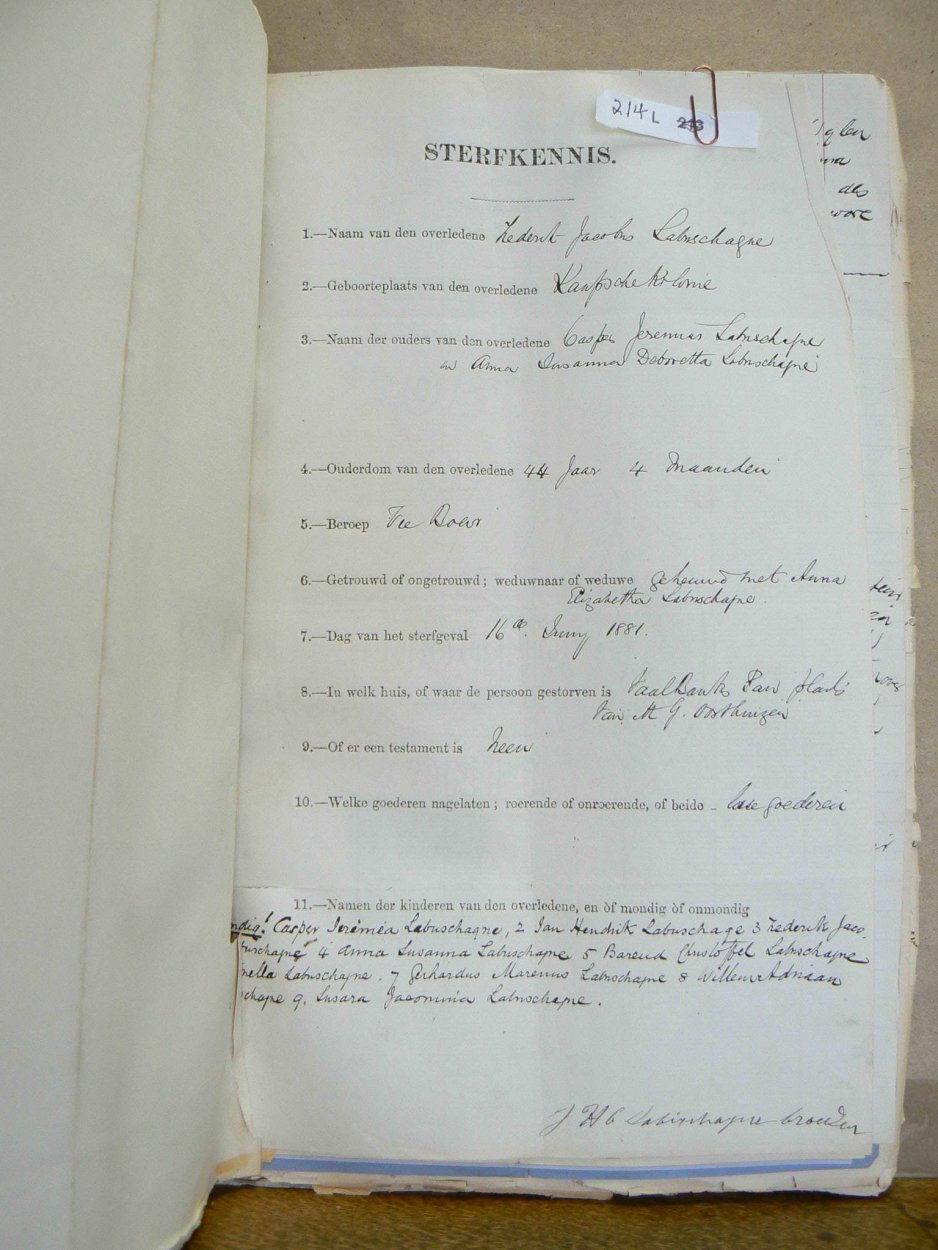 214 L 213
STERFKENNIS.
1.—Naam van den overledene Frederik Jacobus Labuschagne
2.—Geboorteplaats van den overledene Kaapsche Kolonie
3.—Naam der ouders van den overledene Casper Jeremias Labuschagne
en Anna Susanna Deboretta Labuschagne
4.—Ouderdom van den overledene 44 Jaar 4 Maanden
5.—Beroep Vee Boer
6.—Getrouwd of ongetrouwd; weduwnaar of weduwe gehuwd met Anna
Elizabetha Labuschagne.
7.—Dag van het sterfgeval 16de Juny 1881.
8.—In welk huis, of waar de persoon gestorven is Vaalbank Pan plaats
van M G. Oosthuizen
9.—Of er een testament is Neen
10.—Welke goederen nagelaten; roerende of onroerende, of beide losse goederen
11.—Namen der kinderen van den overledene, en òf mondig òf onmondig
ndig! Casper Jeremia Labuschagne, 2 Jan Hendrik Labuschage 3 Frederik Jaco-
buschagne 4 Anna Susanna Labuschagne 5 Barend Christoffel Labuschagne
nella Labuschagne. 7 Gerhardus Marenus Labuschagne 8 Willem Adriaan
schagne 9. Susara Jacomina Labuschagne.
J H C Labuschagne broeder